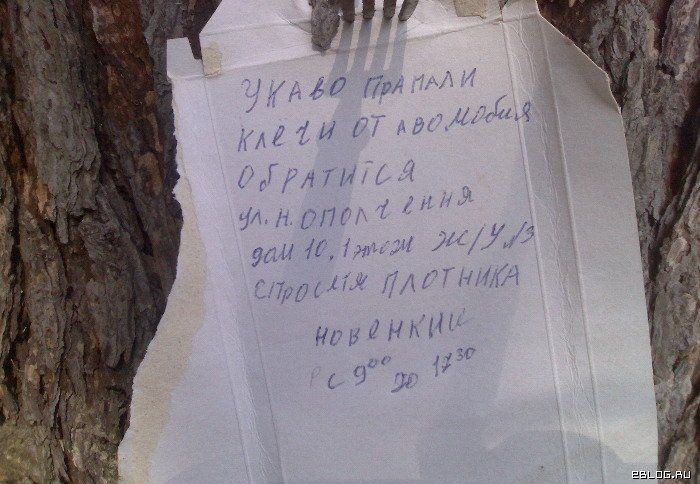 УКАВО ПРАПАЛИ
КЛЕЧИ ОТ АВОМОБИЯ
ОБРАТИТСЯ
УЛ. Н. ОПОЛЧЕНИЯ
ДОМ 10, 1 ЭТОЖ Ж/У №3
СПРОСИТЯ ПЛОТНИКА
НОВЕНКИЙ
С 9⁰⁰ ДО 17³⁰
EBLOG.RU